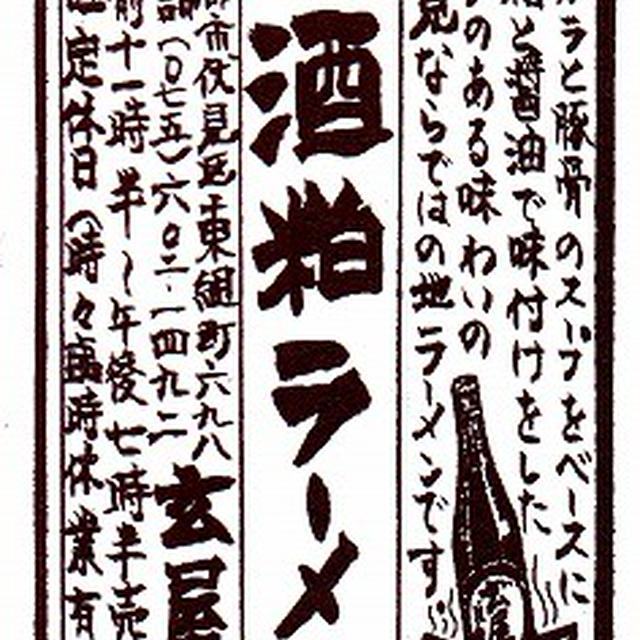 ガラと豚骨のスープをベースに
粕と醤油で味付けをした
のある味わいの
見ならではの地ラーメンです。
酒粕ラーメ
都市伏見区東組町六九八
(〇七五)六〇二-一四九二
玄屋
前十一時半〜午後七時半売
定休日(時々臨時休業有